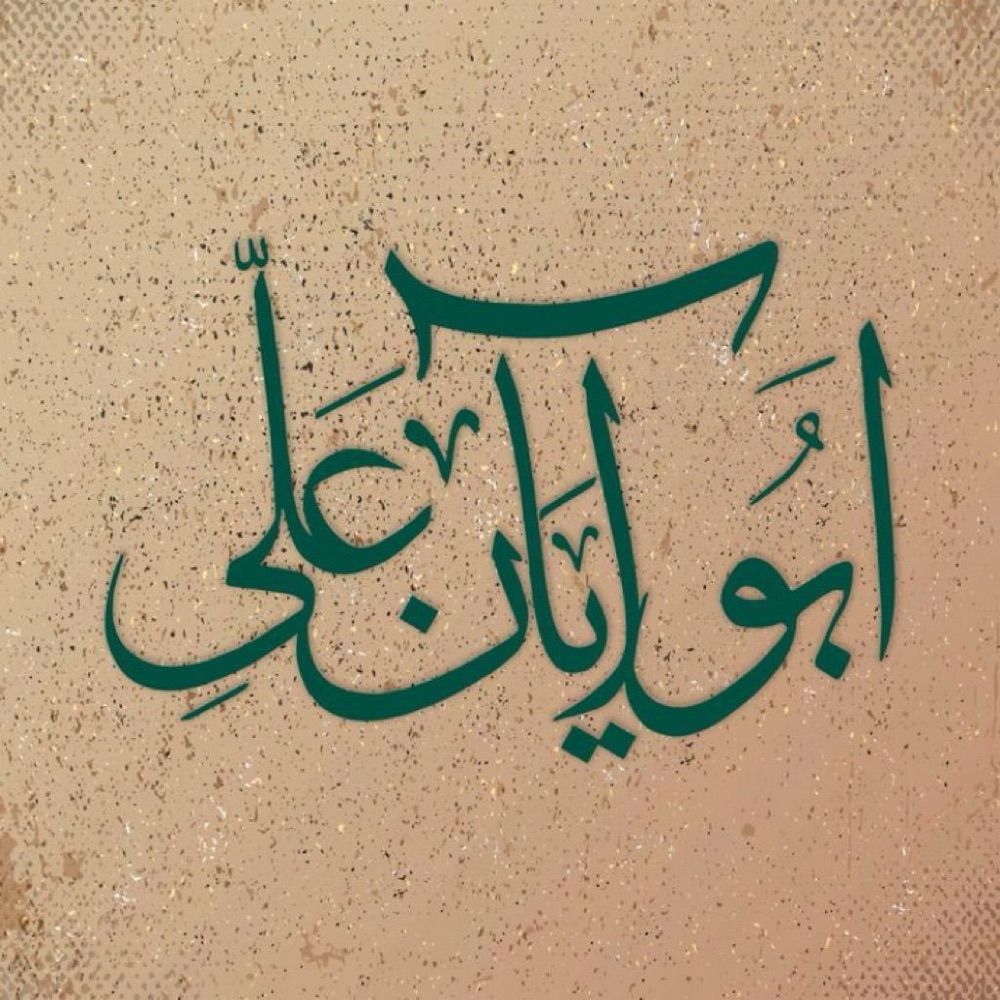 ابُو ایان علّیِ